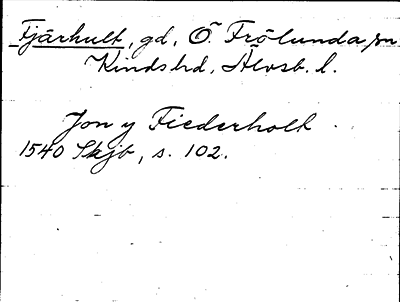 Fjärhult, gd, Ö. Frölunda sn
Kinds hd, Älvsb. l.
Jon y Fiederholt
1540 Skjb, s. 102.